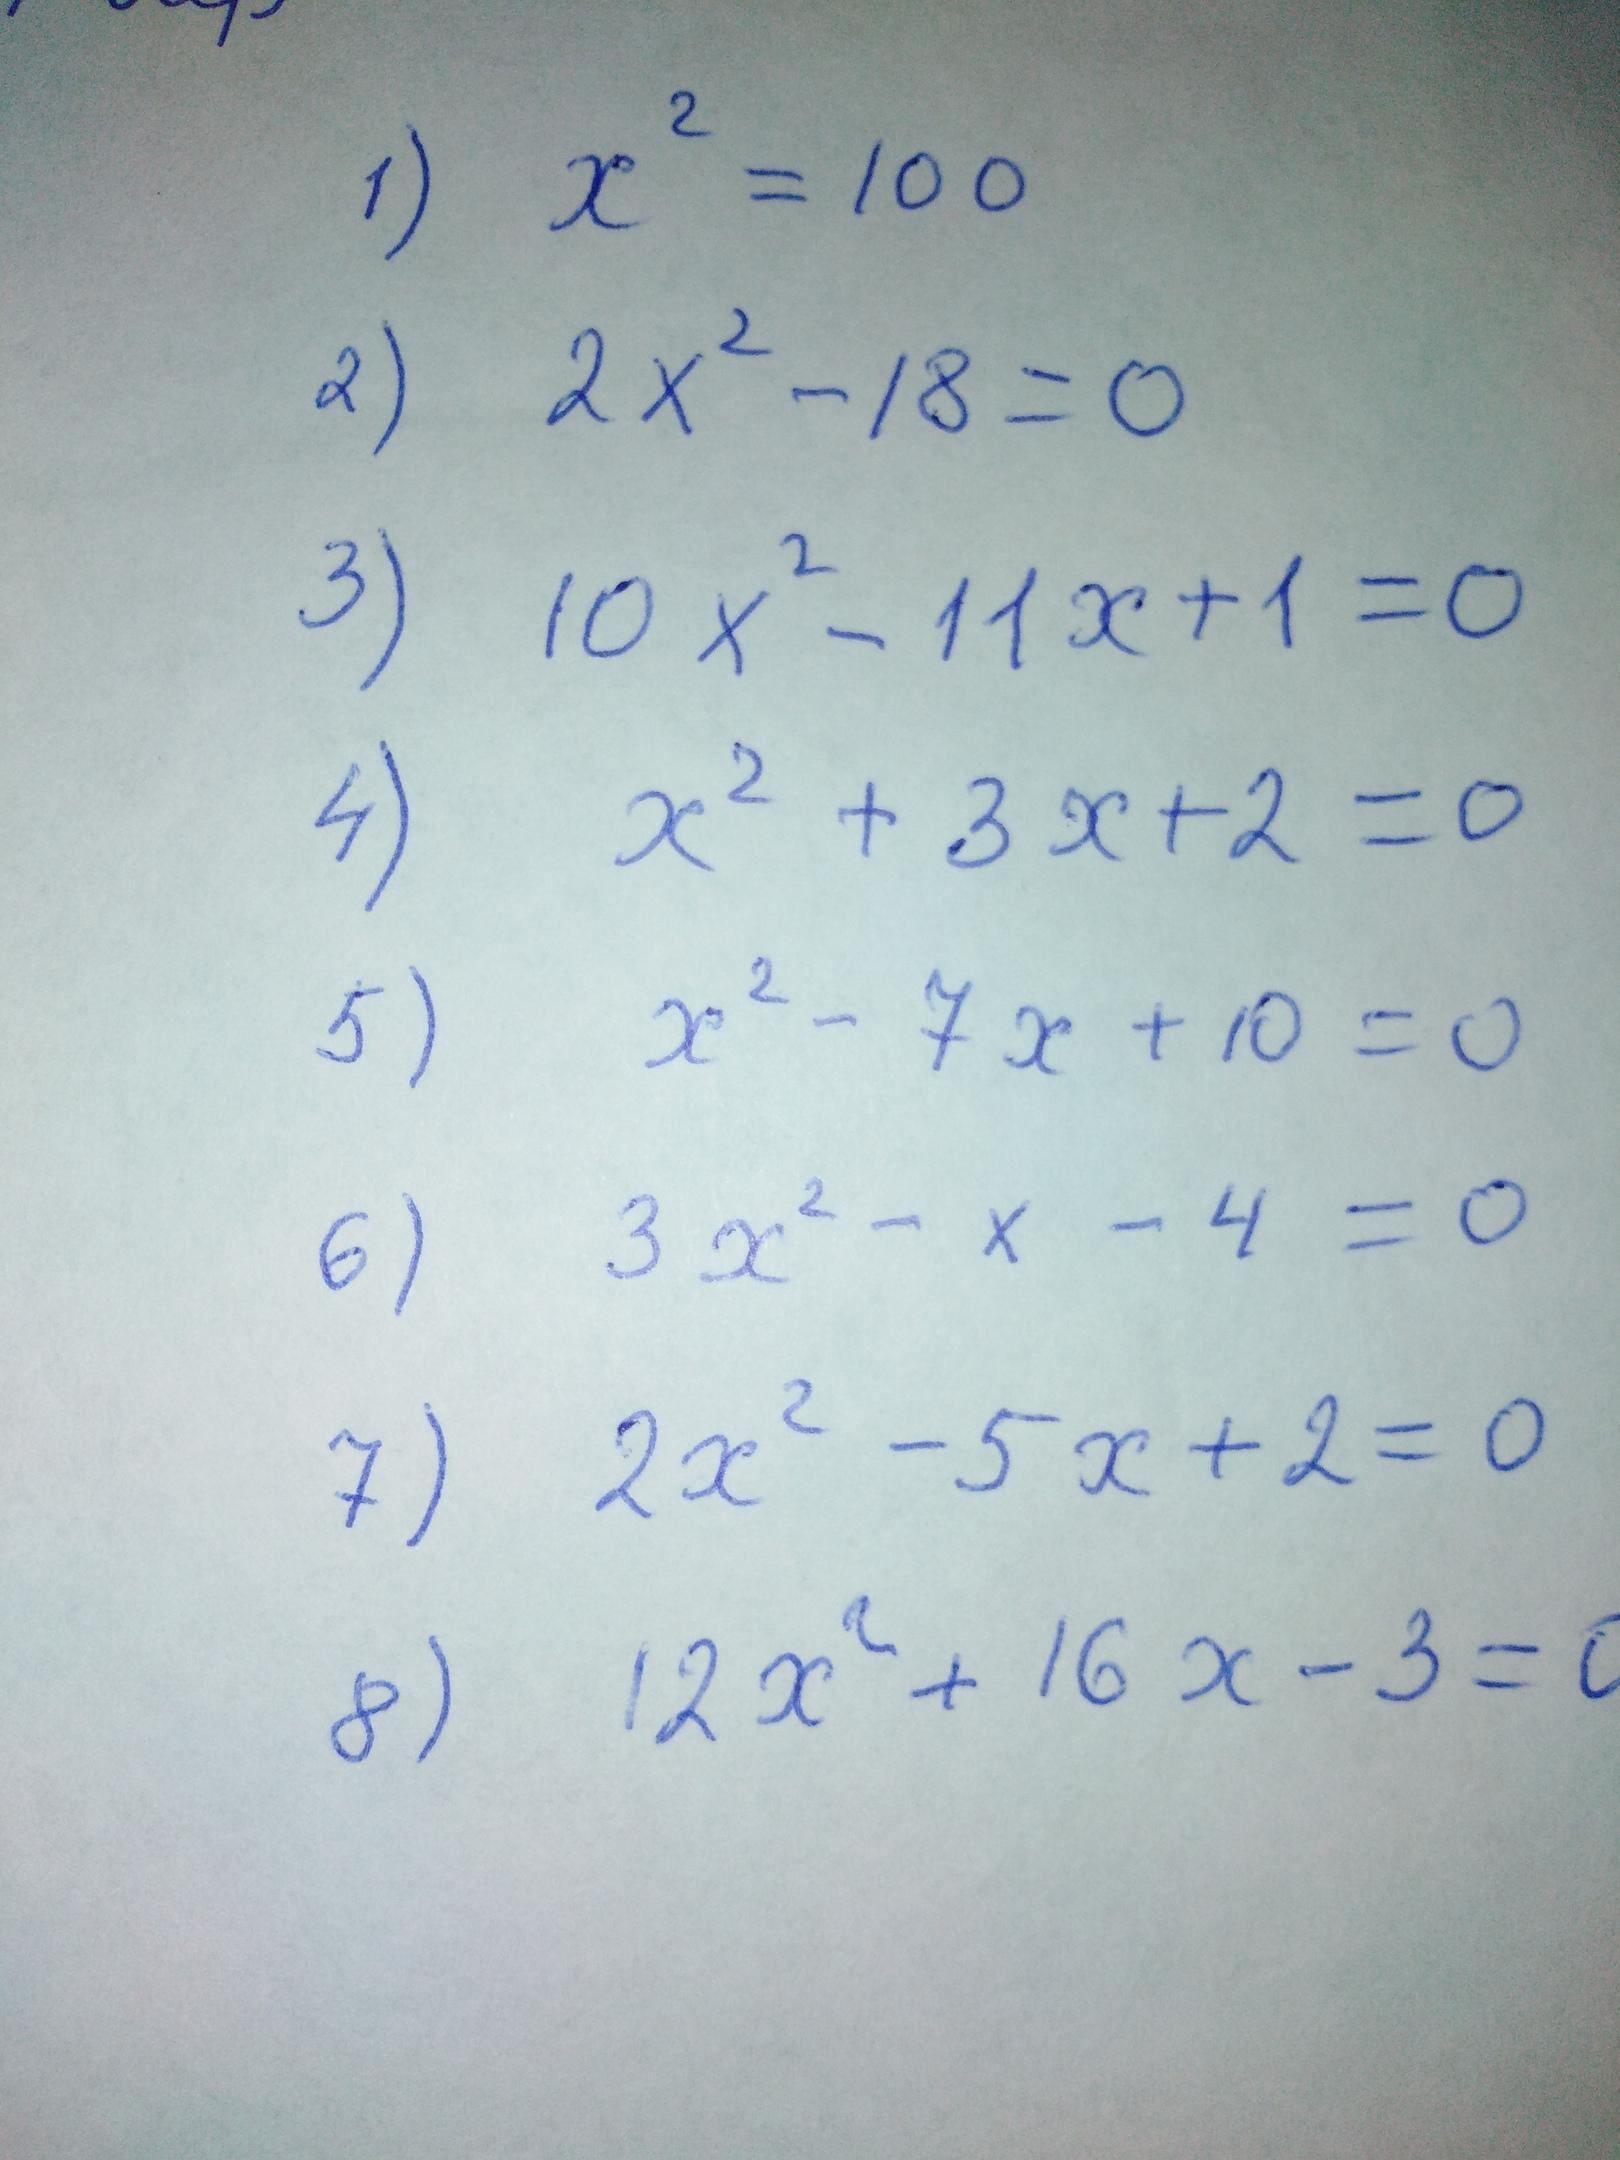 1) x² = 100
2) 2x² - 18 = 0
3) 10x² - 11x + 1 = 0
4) x² + 3x + 2 = 0
5) x² - 7x + 10 = 0
6) 3x² - x - 4 = 0
7) 2x² - 5x + 2 = 0
8) 12x² + 16x - 3 = 0